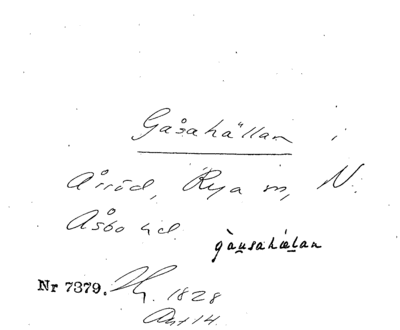 Gåsahällan i
Årröd, Rya sn, N.
Åsbo hd.
gàu̲sahæ̲lan
Nr 7379. 1828
Art 14.